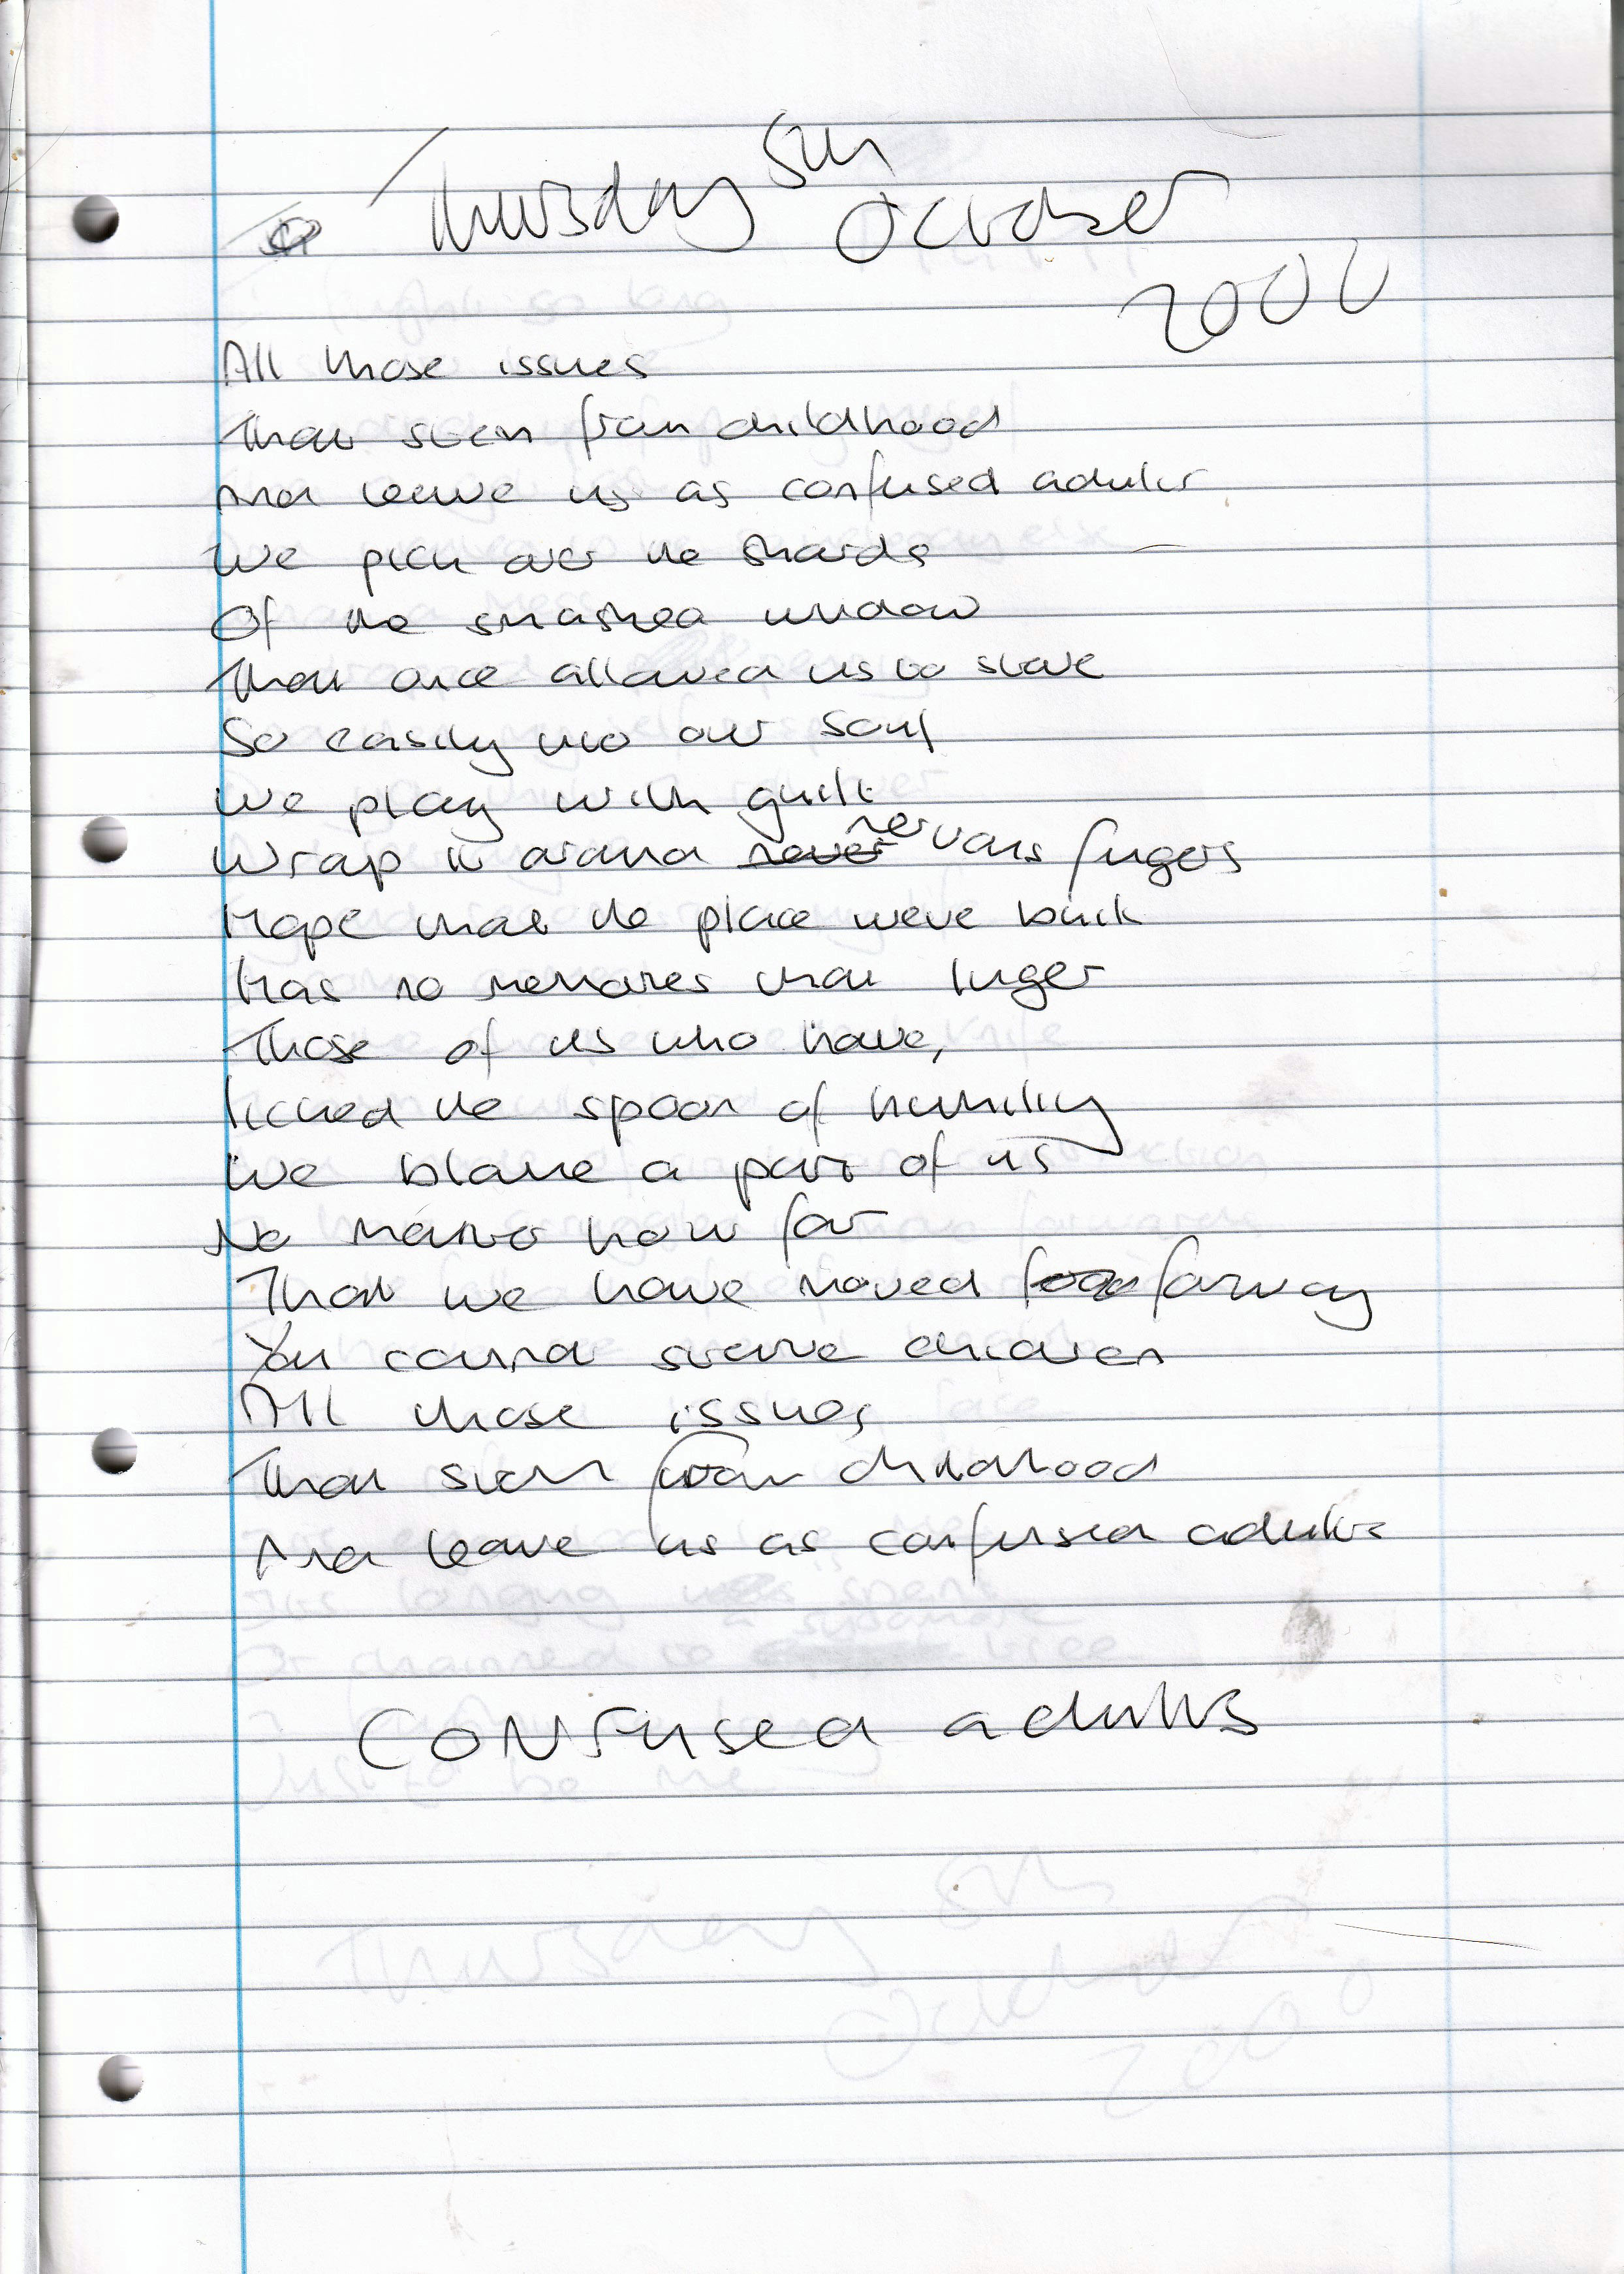 Thursday 5th
October
2000
All those issues
That stem from childhood
And leave us as confused adults
We pick over the shards
Of the smashed window
That once allowed us to stare
So easily into our soul
We play with guilt
Wrap it around never nervous fingers
Hope that the place weve built
Has no memories that linger
Those of us who have,
licked the spoon of humility
We blame a part of us
No matter how far
That we have moved faraway
You cannot starve children
All those issues
That stem from childhood
And leave us as confused adults
CONFUSED adults